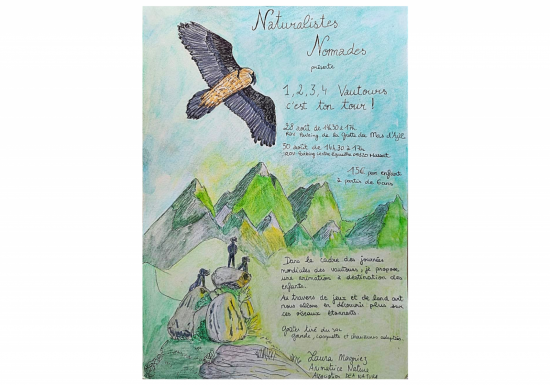 Naturalistes
Nomades
présente
1, 2, 3, 4 Vautours
c'est ton tour !
28 août de 14h30 à 17h
RDV Parking de la grotte du Mas d'Azil
30 août de 14h30 à 17h
RDV Parking centre équestre 09320 Massat
15€ par enfant
à partir de 6 ans
Dans le cadre des journées
mondiales des vautours, je propose
une animation à destination des
enfants.
Au travers de jeux et de land art
nous allons en découvrir plus sur
ces oiseaux étonnants
goûter tiré du sac
gourde, casquette et chaussures adaptées
Laura Magniez
Animatrice Nature